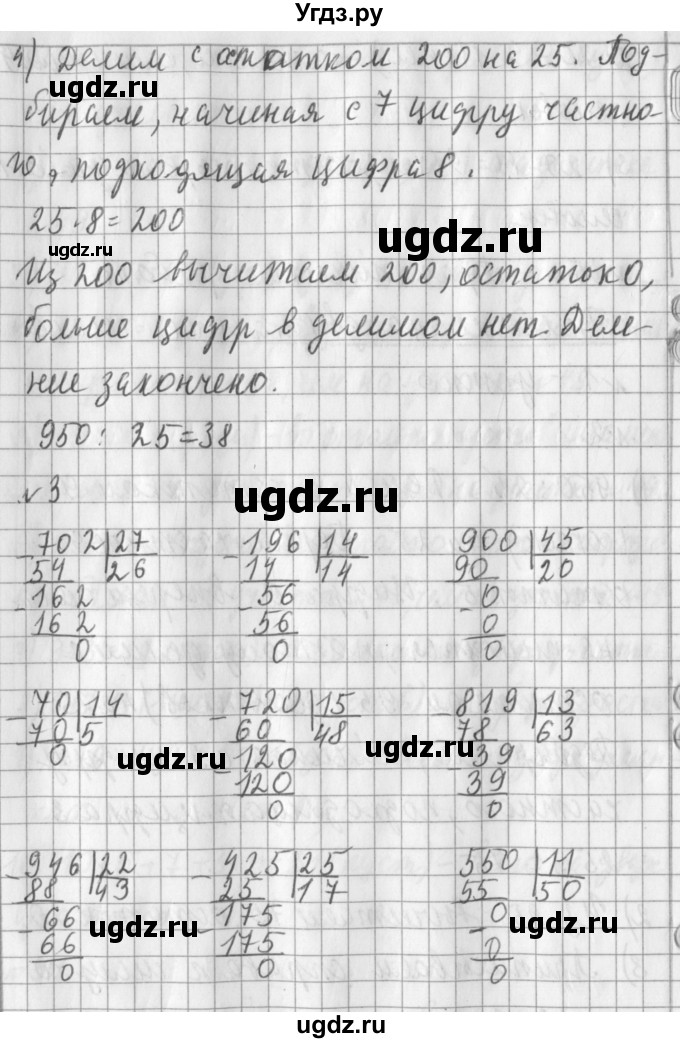 Угдз.ру
4) Делим с остатком 200 на 25. Под-
бираем, начиная с 7 цифру частно-
го, подходящая цифра 8.
25·8=200
Из 200 вычитаем 200, остаток 0,
больше цифр в делимом нет. Деле-
ние закончено.
950: 25=38
№3
-702|27 -196|14 -900|45
54 26 14 14 90 20
-162 -56 -0
162 56 0
0 0 0
-70|14 -720|15 -819|13
70 5 60 48 78 63
0 -120 -39
120 39
0 0
-946|22 -425|25 -550|11
88 43 25 17 55 50
-66 -175 -0
66 175 0
0 0 0
ugdz.ru
ugdz.ru
ugdz.ru
ugdz.ru
ugdz.ru
ugdz.ru
ugdz.ru
ugdz.ru
ugdz.ru
ugdz.ru